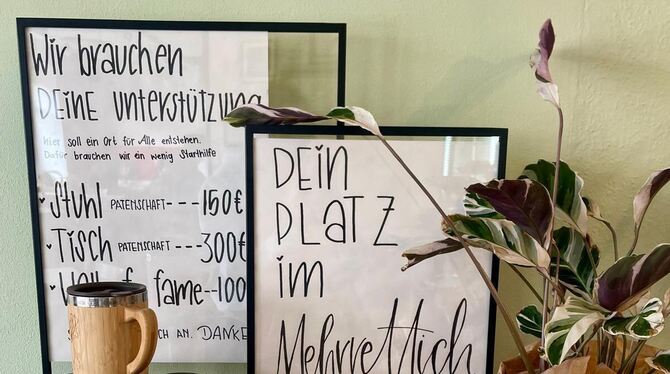 Wir brauchen
DEINE unterstützung
hier soll ein Ort für Alle entstehen.
Dafür brauchen wir ein wenig Starthilfe
Stuhl PATENSCHAFT---150€
Tisch PATENSCHAFT---300€
of fame--100
AN. DANKE
DEIN
PLATZ
im
Mehrrettich